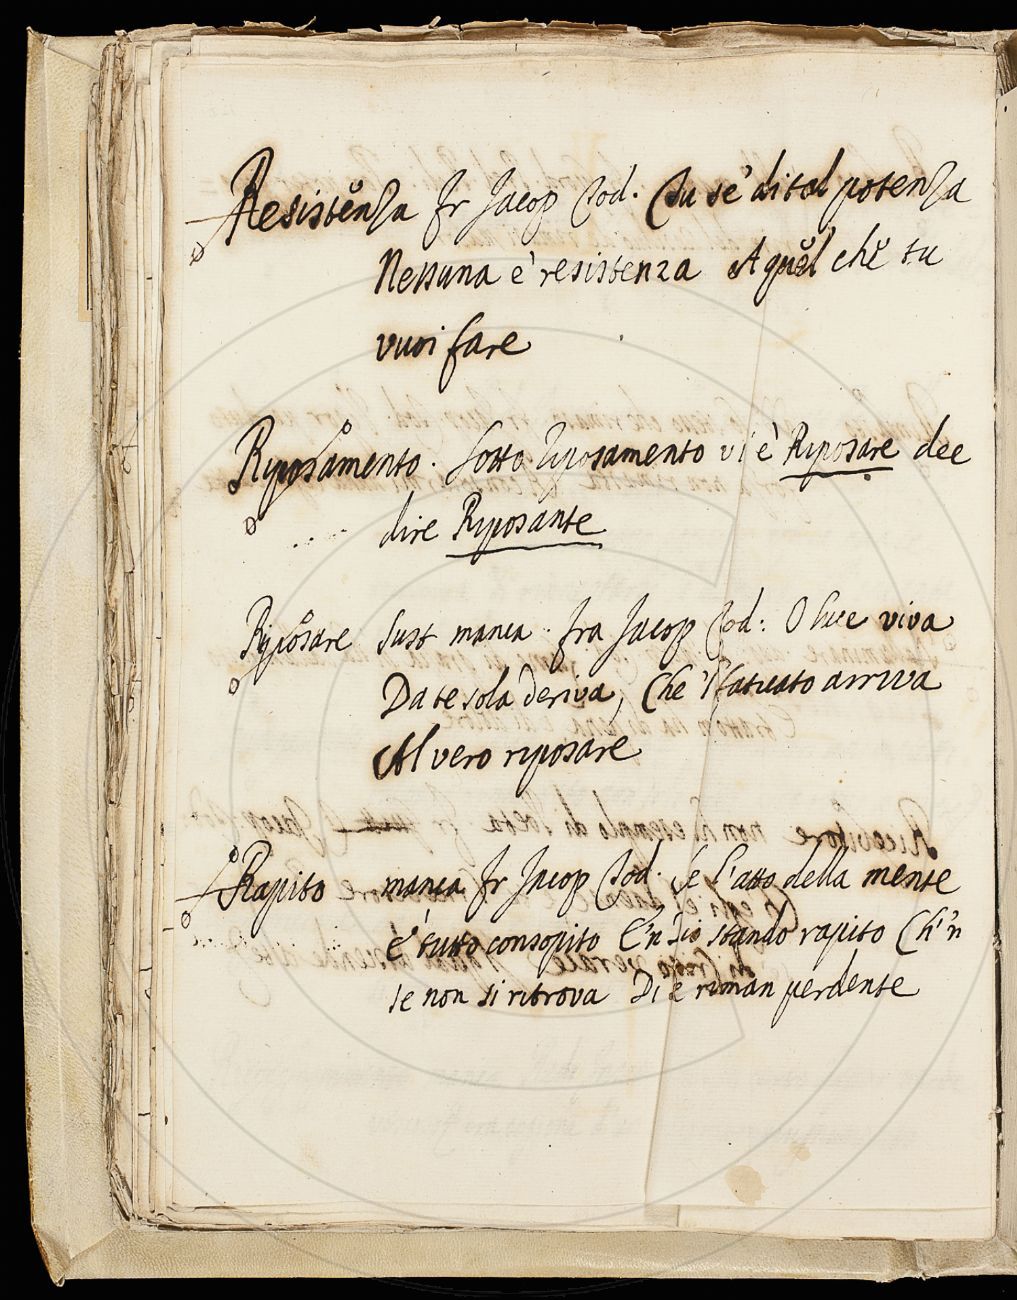 Resistenza Fr Jacop Tod. Tu se' di tal potenza
Nessuna è resistenza A quel che tu
vuoi fare
Riposamento. Sotto Riposamento vi è Riposare dee
dire Riposante
Riposare Sust manca. Fra Jacop Tod: O luce viva
Da te sola deriva, Che 'l satuato arriva
Al vero riposare
Rapito manca Fr Jacop Tod. Se l'atto della mente
è tutto consopito E'n Dio stando rapito Ch'n
se non si ritrova Di e riman perdente